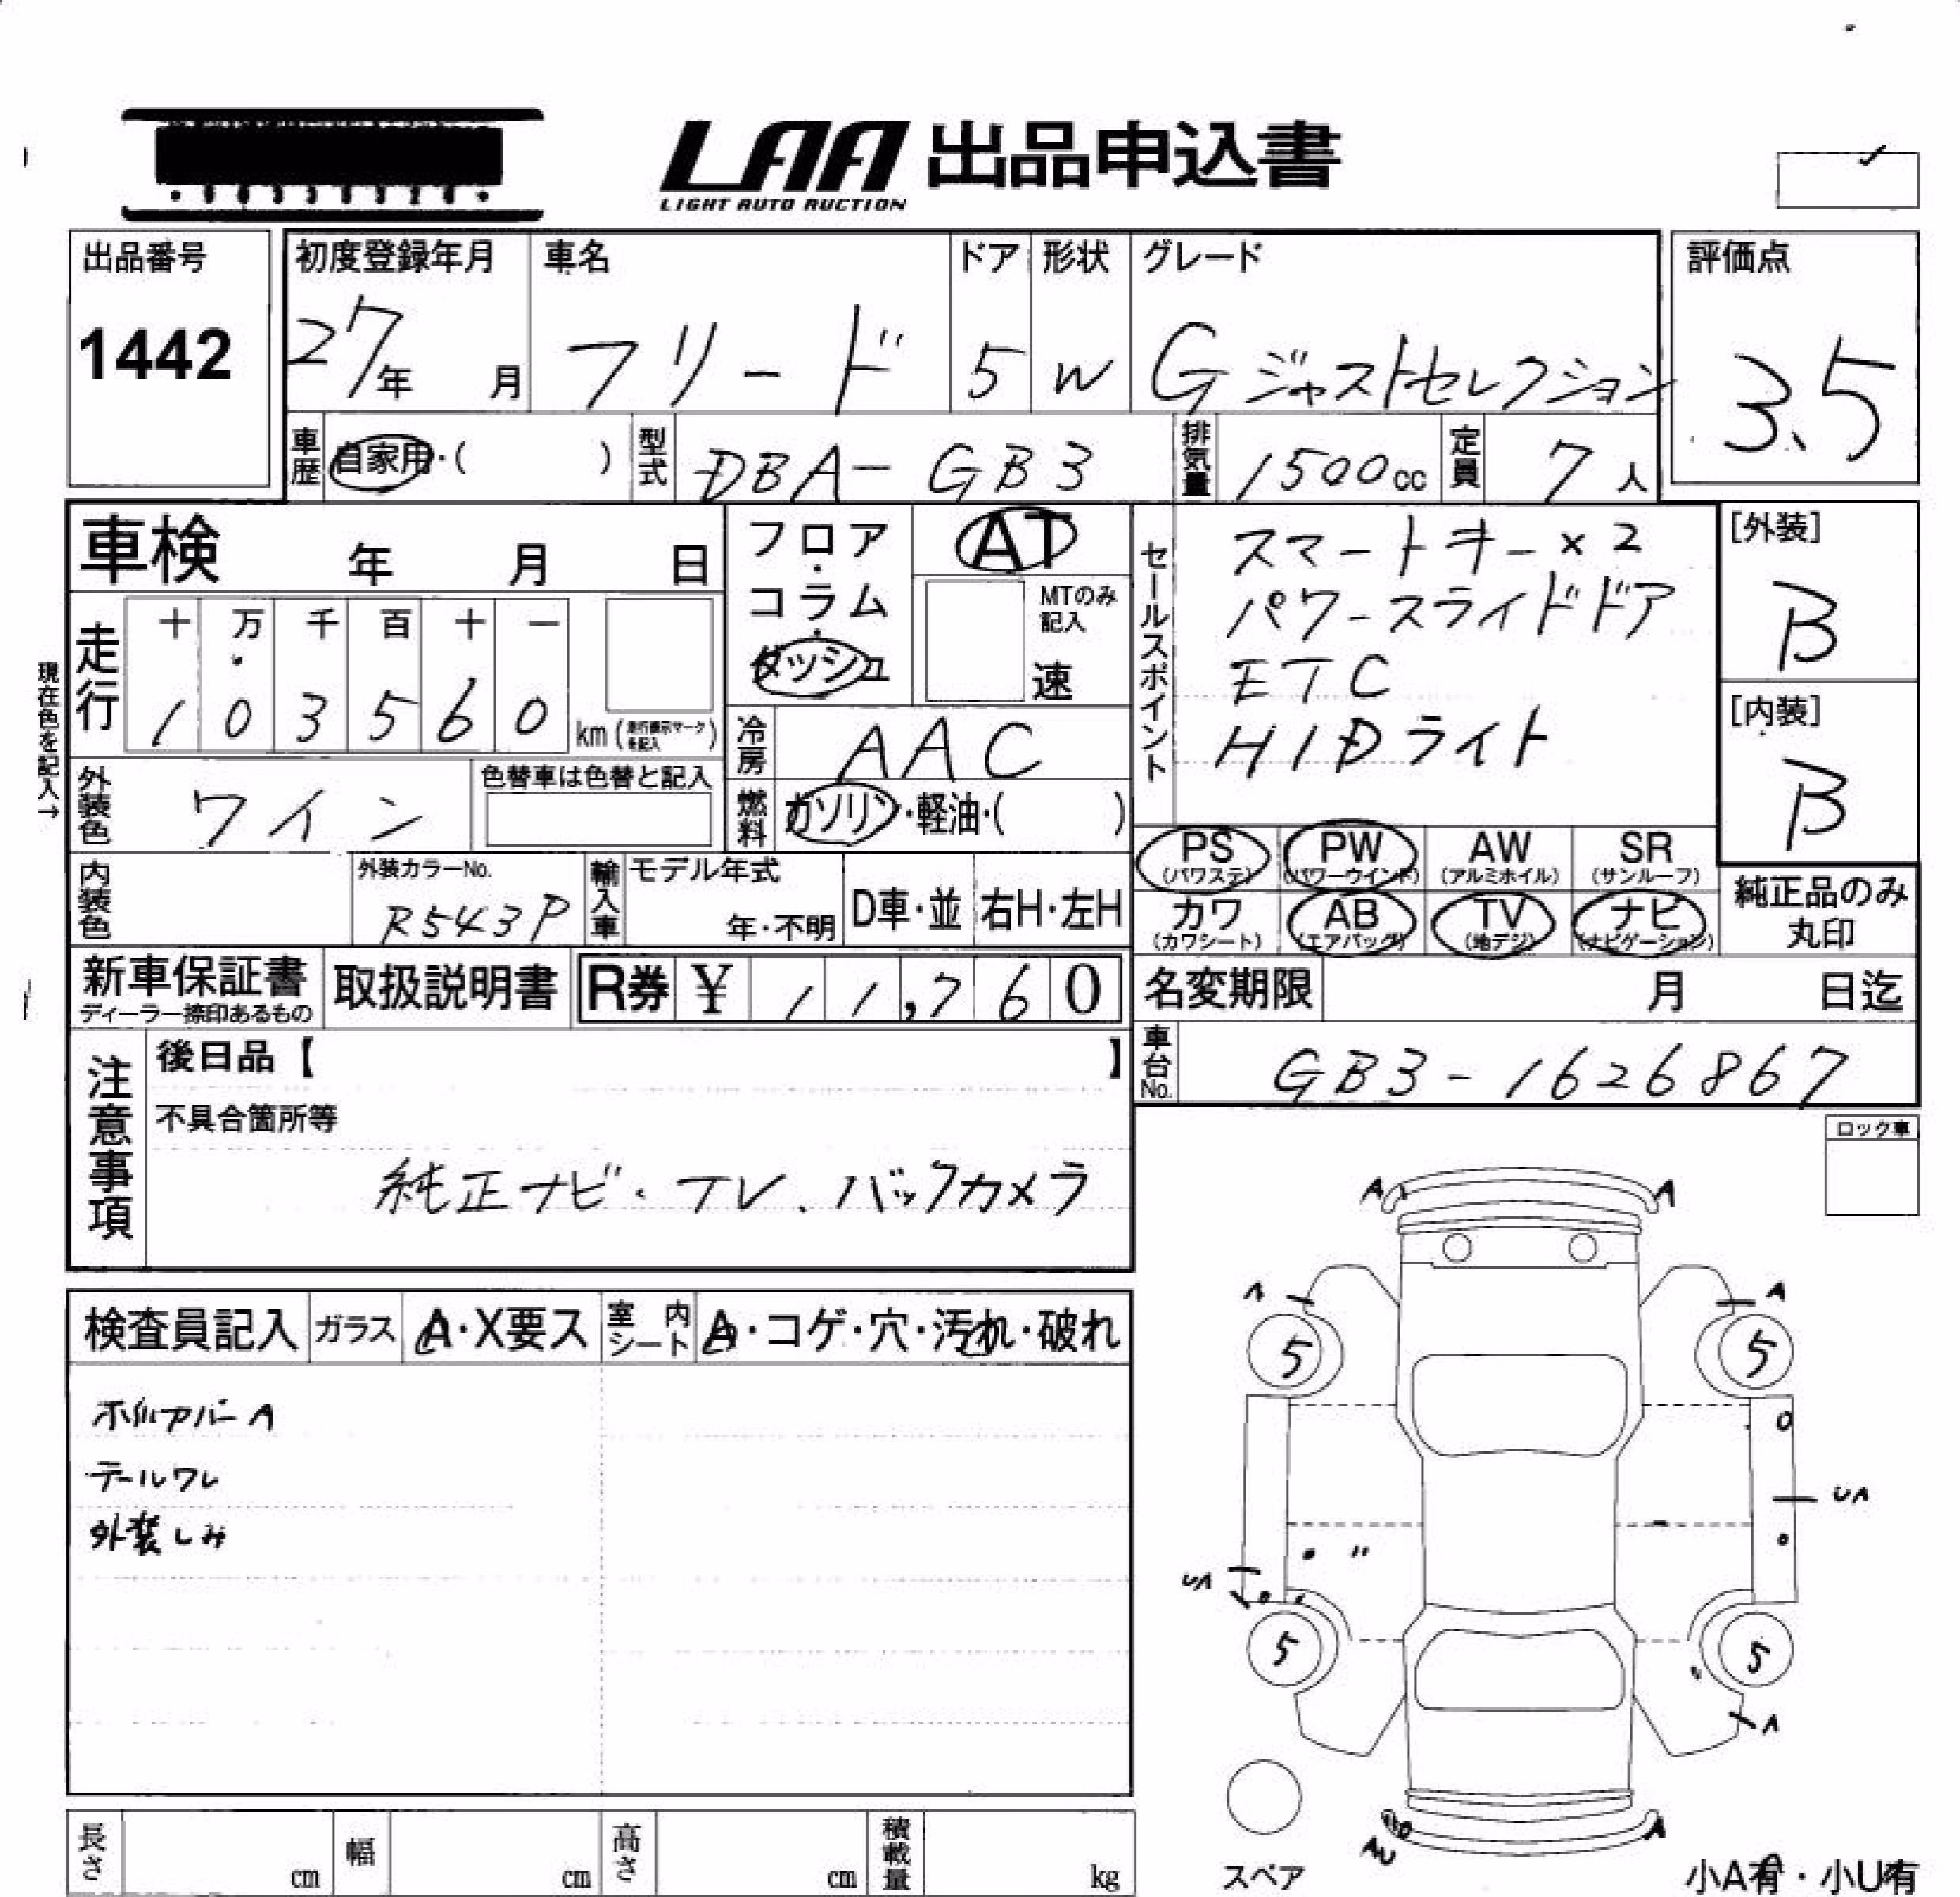 LAA 出品申込書
LIGHT AUTO AUCTION
出品番号
1442
初度登録年月
27年 月
車名
フリード
ドア
5
形状
W
グレード
G ジャストセレクション
評価点
3.5
車歴 自家用・( )
型式 DBA-GB3
排気量 1500cc
定員 7人
車検 年 月 日
フロア・コラム・ダッシュ
AT
MTのみ記入
速
セールスポイント
スマートキー×2
パワースライドドア
ETC
HIDライト
[外装]
B
[内装]
B
現在色を記入→
走行
十 万 千 百 十 一
1 0 3 5 6 0 km (走行表示マークを記入)
冷房 AAC
外装色 ワイン
色替車は色替と記入
燃料 ガソリン・軽油・( )
PS (パワステ)
PW (パワーウインド)
AW (アルミホイル)
SR (サンルーフ)
カワ (カワシート)
AB (エアバッグ)
TV (地デジ)
ナビ (ナビゲーション)
純正品のみ
丸印
内装色
外装カラーNo.
R543P
輸入車
モデル年式
年・不明
D車・並
右H・左H
新車保証書
ディーラー捺印あるもの
取扱説明書
R券 ¥ 11,760
名変期限 月 日迄
車台No. GB3-1626867
注意事項
後日品【 】
不具合箇所等
純正ナビ・TV、バックカメラ
ロック車
検査員記入
ガラス A・X要ス
室内シート A・コゲ・穴・汚れ・破れ
テールワレ
外装しみ
A A
A A
5 5
5 5
A
AU A
スペア
小A有・小U有
長さ cm
幅 cm
高さ cm
積載量 kg